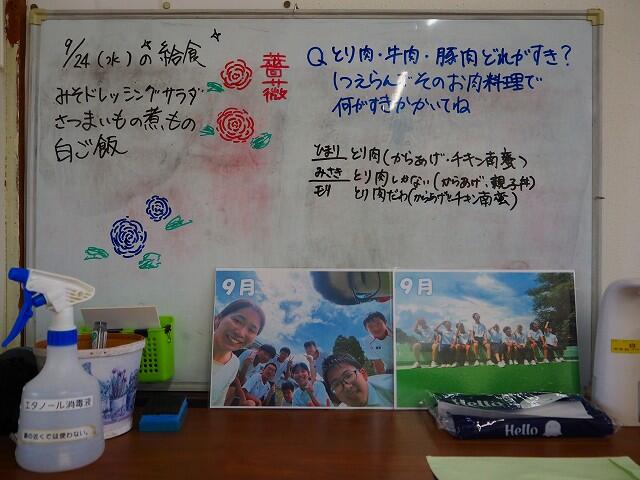 9/24(水)の給食
みそドレッシングサラダ
さつまいもの煮もの
白ご飯
薔薇
Q とり肉・牛肉・豚肉どれがすき?
1つえらんでそのお肉料理で
何がすきかかいてね
ひまり とり肉(からあげ・チキン南蛮)
みさき とり肉しかない(からあげ、親子丼)
モリ とり肉だわ(からあげとチキン南蛮)
9月
9月
エタノール消毒液
火の近くでは使わない。
Hello
Hello